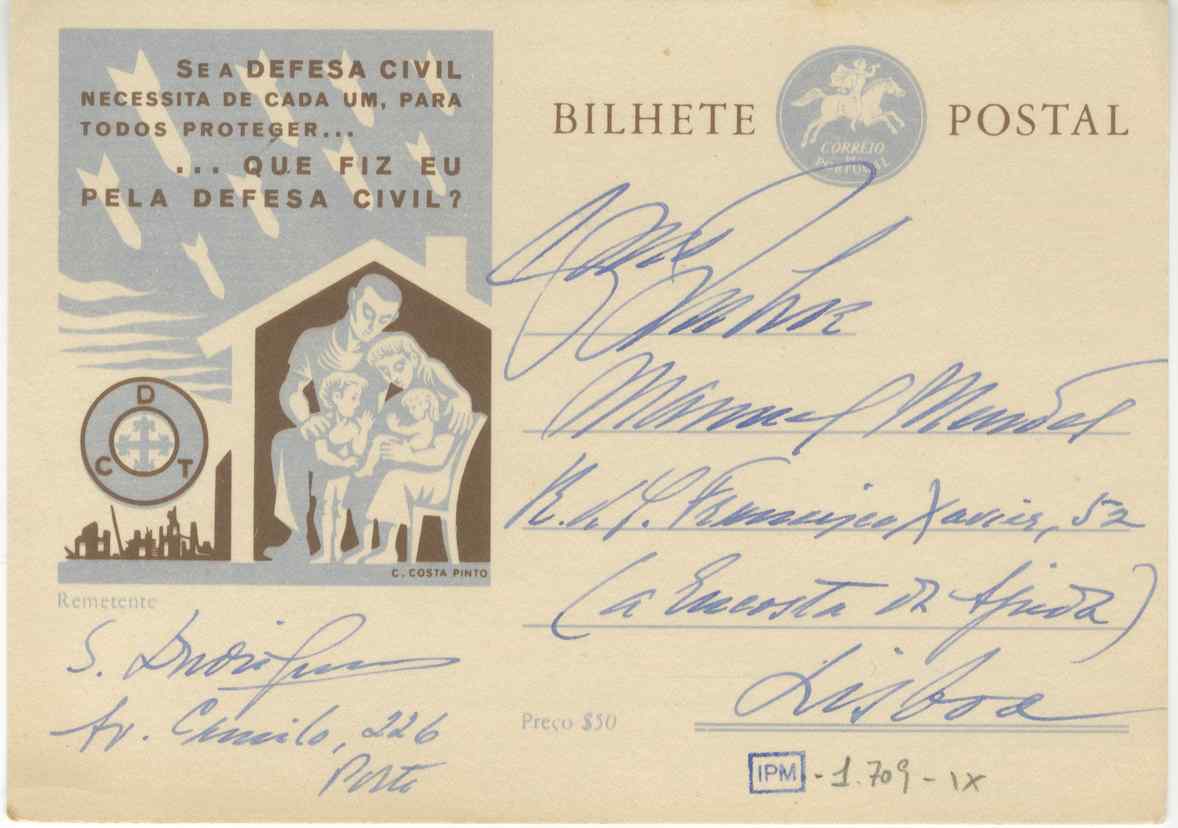 SE A DEFESA CIVIL
NECESSITA DE CADA UM, PARA
TODOS PROTEGER...
... QUE FIZ EU
PELA DEFESA CIVIL?
D
C T
C. COSTA PINTO
BILHETE POSTAL
CORREIO
DE
PORTUGAL
Manuel Mendes
R. de S. Francisco Xavier, 52
(a Encosta da Ajuda)
Lisboa
Remetente
S.
Av. Camilo, 226
Porto
Preço $50
IPM - 1.709 - IX